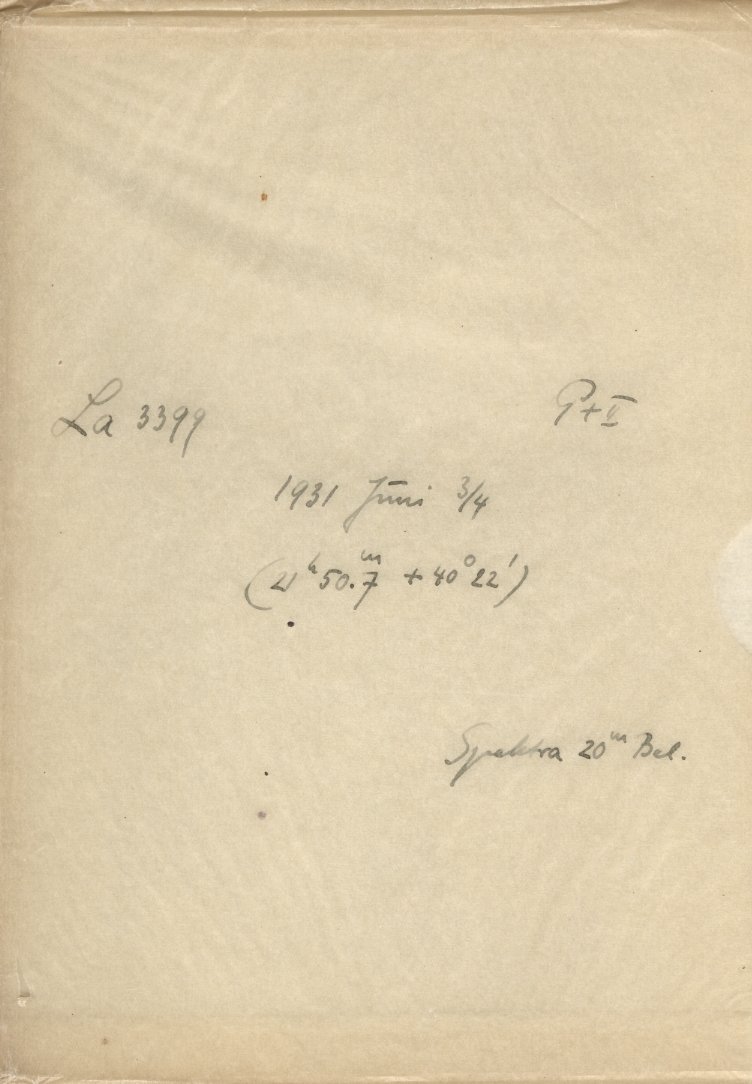 La 3399 P+II
1931 Juni 3/4
(21ʰ 50.7ᵐ + 40° 22')
Spektra 20ᵐ Bel.